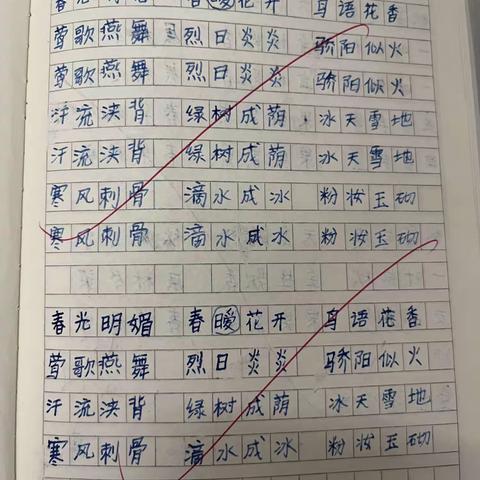 春光明媚 春暧花开 鸟语花香
莺歌燕舞 烈日炎炎 骄阳似火
莺歌燕舞 烈日炎炎 骄阳似火
汗流浃背 绿树成荫 冰天雪地
汗流浃背 绿树成荫 冰天雪地
寒风刺骨 滴水成冰 粉妆玉砌
寒风刺骨 滴水成冰 粉妆玉砌
春光明媚 春暧花开 鸟语花香
莺歌燕舞 烈日炎炎 骄阳似火
汗流浃背 绿树成荫 冰天雪地
寒风刺骨 滴水成冰 粉妆玉砌